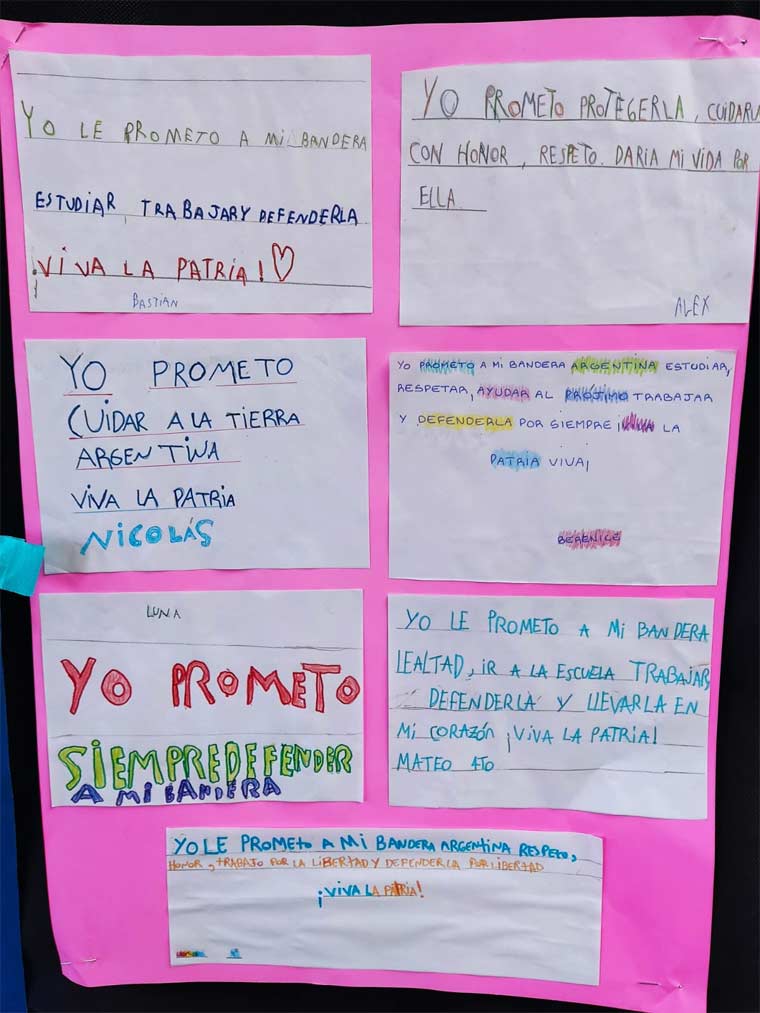 YO LE PROMETO A MI BANDERA
ESTUDIAR, TRABAJAR Y DEFENDERLA
¡VIVA LA PATRIA!
BASTIAN
YO PROMETO PROTEGERLA, CUIDARLA
CON HONOR, RESPETO. DARIA MI VIDA POR
ELLA
ALEX
YO PROMETO
CUIDAR A LA TIERRA
ARGENTINA
VIVA LA PATRIA
NICOLÁS
YO PROMETO A MI BANDERA ARGENTINA ESTUDIAR,
RESPETAR, AYUDAR AL PRÓJIMO TRABAJAR
Y DEFENDERLA POR SIEMPRE ¡VIVA LA
PATRIA VIVA¡
BERENICE
LUNA
YO PROMETO
SIEMPRE DEFENDER
A MI BANDERA
YO LE PROMETO A MI BANDERA
LEALTAD, IR A LA ESCUELA TRABAJAR,
DEFENDERLA Y LLEVARLA EN
MI CORAZÓN ¡VIVA LA PATRIA!
MATEO 4TO
YO LE PROMETO A MI BANDERA ARGENTINA RESPETO,
HONOR, TRABAJO POR LA LIBERTAD Y DEFENDERLA POR LIBERTAD
¡VIVA LA PATRIA!